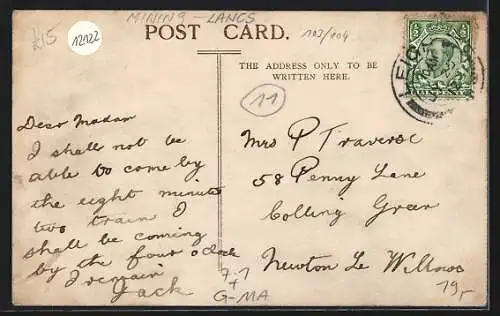 MINING - LANCS
£15
12122
POST CARD.
103/104
THE ADDRESS ONLY TO BE
WRITTEN HERE.
11
LEIGH
Dear Madam
I shall not be
able to come by
the eight minute
two train I
shall be coming
by the four o clock
I remain
Jack
Mrs P Traverse
58 Penny Lane
Colling Green
Newton Le Willows
7-7
+
G-MA
19,-